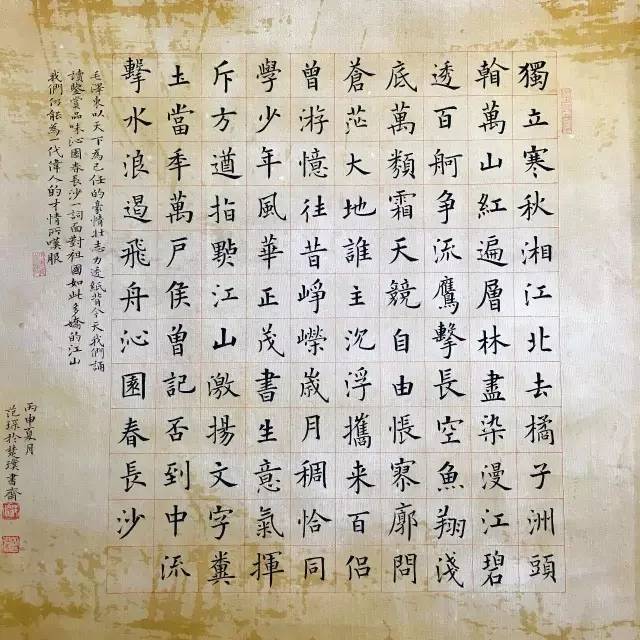 獨立寒秋湘江北去橘子洲頭
看萬山紅遍層林盡染漫江碧
透百舸争流鷹擊長空魚翔淺
底萬類霜天競自由悵寥廓問
蒼茫大地誰主沉浮攜来百侣
曾游憶往昔崢嶸歲月稠恰同
學少年風華正茂書生意氣揮
斥方遒指點江山激揚文字糞
土當秊萬户侯曾記否到中流
擊水浪遏飛舟沁園春長沙
毛澤東以天下為己任的豪情壯志力透紙背今天我們誦
讀鑒賞品味沁園春長沙一詞面對祖國如此多嬌的江山
我們仍能為一代偉人的才情所嘆服
丙申夏月
范琛於楚璞書齋